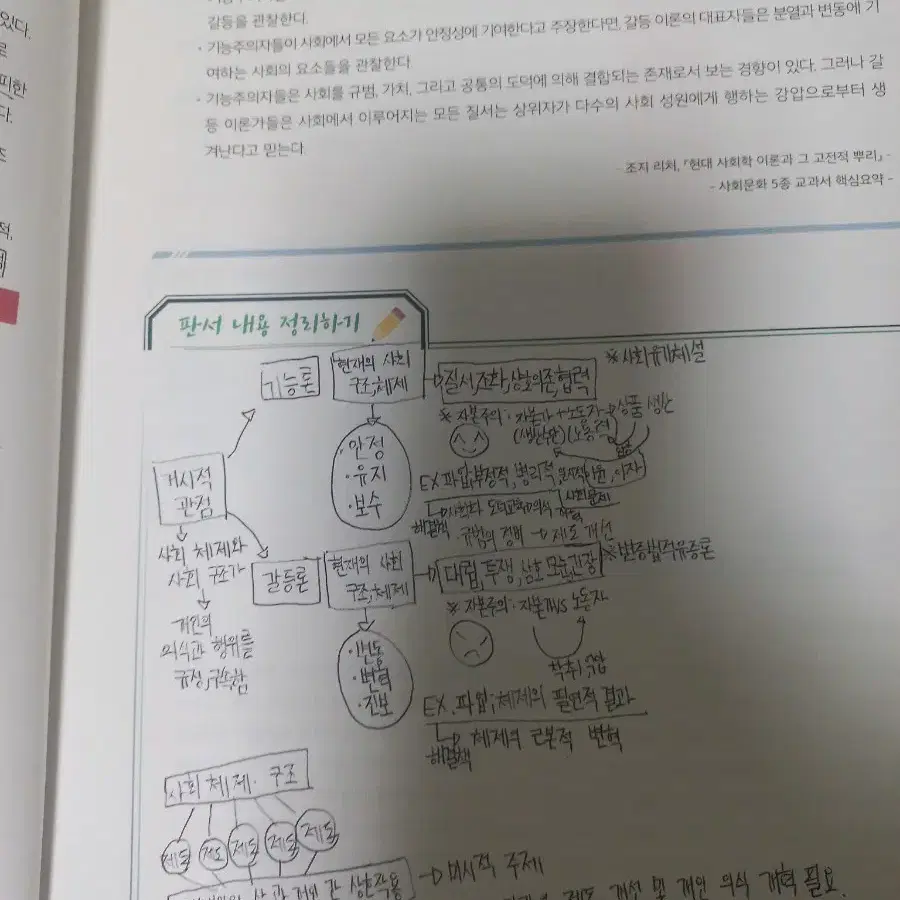 갈등을 관찰한다.
· 기능주의자들이 사회에서 모든 요소가 안정성에 기여한다고 주장한다면, 갈등 이론의 대표자들은 분열과 변동에 기
여하는 사회의 요소들을 관찰한다.
· 기능주의자들은 사회를 규범, 가치, 그리고 공통의 도덕에 의해 결합되는 존재로서 보는 경향이 있다. 그러나 갈
등 이론가들은 사회에서 이루어지는 모든 질서는 상위자가 다수의 사회 성원에게 행하는 강압으로부터 생
겨난다고 믿는다.
- 조지 리처, 『현대 사회학 이론과 그 고전적 뿌리』 -
- 사회문화 5종 교과서 핵심요약 -
있다.
피한
판서 내용 정리하기
기능론
현재의 사회
구조, 체제
질서, 조화, 상호의존, 협력
※ 사회유기체설
※ 자본주의· 자본가 + 노동자 → 상품 생산
(생산수단) (노동력)
· 안정
· 유지
· 보수
EX 파업; 부정적, 병리적, 일시적
이자
사회문제
해결책
· 규범의 정비 → 제도 개선
거시적
관점
사회 체제와
사회 구조가
개인의
의식과 행위를
규정, 구속함
갈등론
현재의 사회
구조, 체제
대립, 투쟁, 상호 모순, 긴장
※ 변증법적유증론
※ 자본주의· 자본가VS 노동자
착취, 억압
· 변동
· 변혁
· 진보
EX. 파업; 체제의 필연적 결과
해결책
체제의 근본적 변혁
사회 체제· 구조
제도 제도 제도 제도 제도
간 상호작용
→ 미시적 주제
제도 개선 및 개인 의식 개혁 필요.